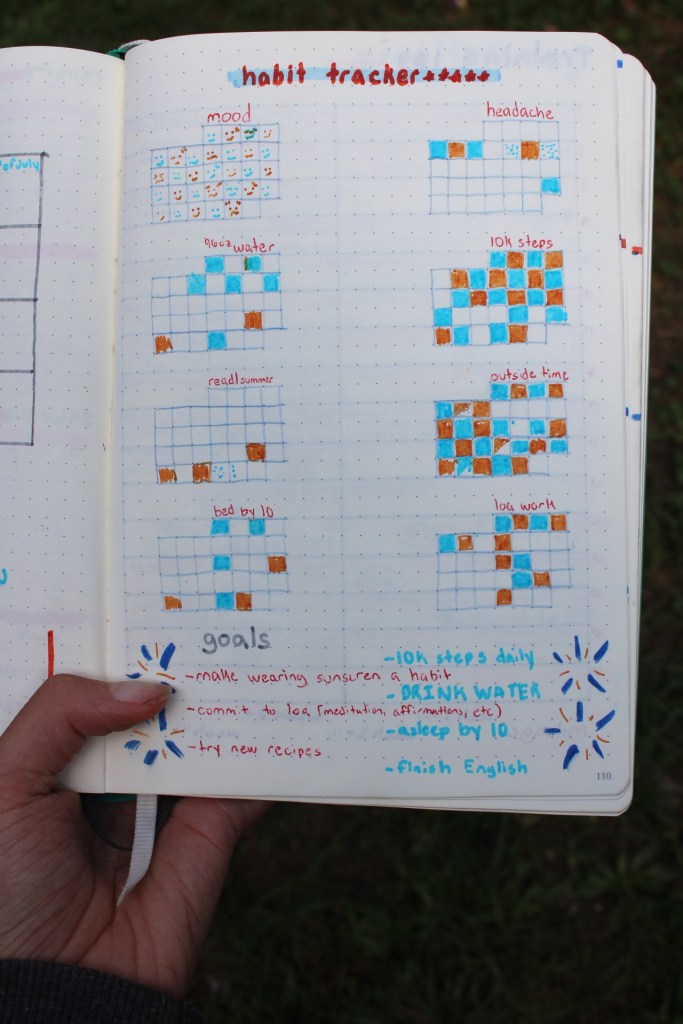 ofJuly
habit tracker*****
mood
headache
96oz water
10k steps
read/summer
outside time
bed by 10
loa work
goals
-10k steps daily
-make wearing sunscren a habit
-DRINK WATER
-commit to loa (meditation, affirmations, etc)
-asleep by 10
-try new recipes
-finish English
110